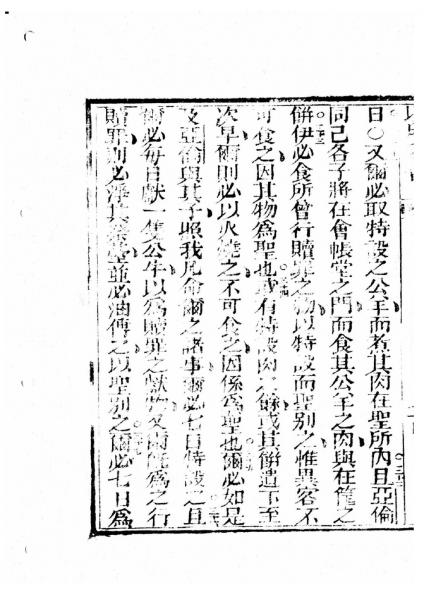 日○又爾必取特設之公羊而煮其肉在聖所內且亞倫
同己各子將在會帳堂之門而食其公羊之肉與在筐之
餅伊必食所曾行贖罪之物以特設而聖別之惟異客不
可食之因其物為聖也或有特設肉之餘或其餅遺下至
次早爾則必以火燒之不可食之因係為聖也爾必如是
及亞倫與其子照我凡命爾之諸事爾必七日特設之且
爾必每日獻一隻公牛以為贖罪之獻物又爾既為之行
贖罪則必淨其祭臺並必油傅之以聖別之爾必七日為